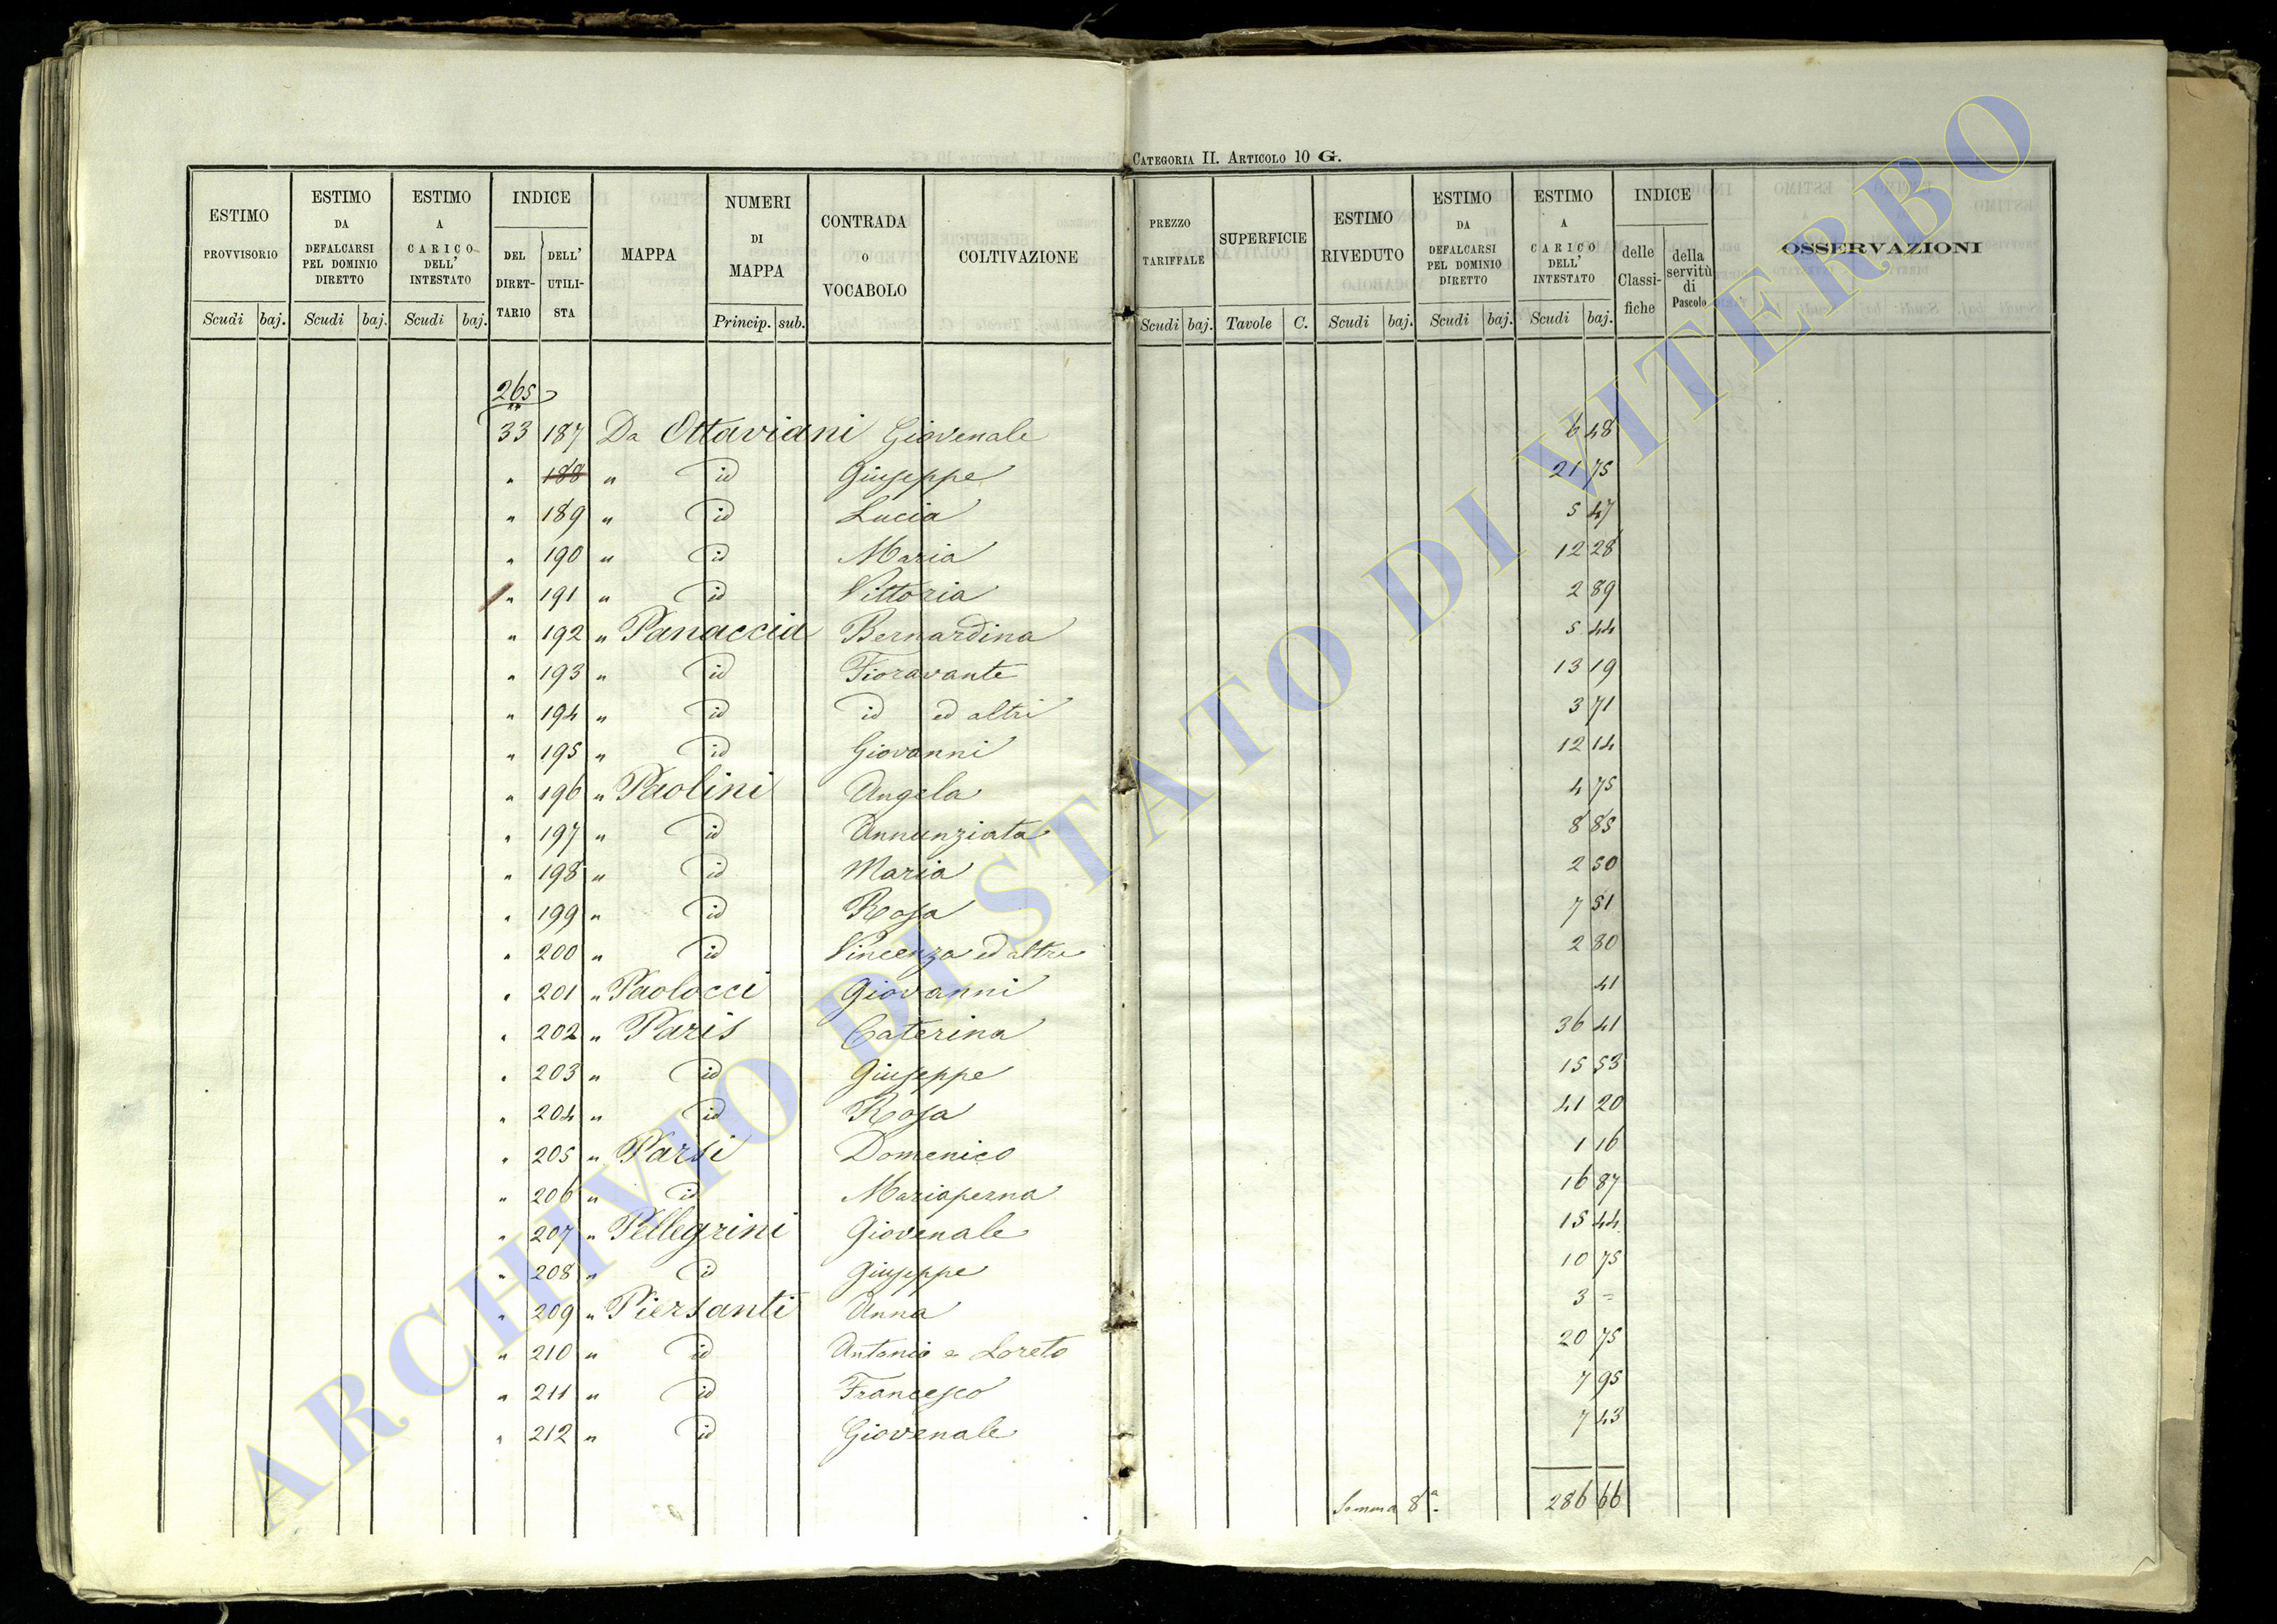 CATEGORIA II. ARTICOLO 10 G.
ESTIMO PROVVISORIO
ESTIMO DA DEFALCARSI PEL DOMINIO DIRETTO
ESTIMO A CARICO DELL' INTESTATO
INDICE
DEL DIRET-TARIO
DELL' UTILI-STA
MAPPA
NUMERI DI MAPPA
CONTRADA O VOCABOLO
COLTIVAZIONE
PREZZO TARIFFALE
SUPERFICIE
ESTIMO RIVEDUTO
ESTIMO DA DEFALCARSI PEL DOMINIO DIRETTO
ESTIMO A CARICO DELL' INTESTATO
INDICE
delle Classi-fiche
della servitù di Pascolo
OSSERVAZIONI
Scudi baj. Scudi baj. Scudi baj. Princip. sub. Scudi baj. Tavole C. Scudi baj. Scudi baj. Scudi baj.
265
33 187 Da Ottaviani Giovenale 6 48
" 188 " id Giuseppe 21 75
" 189 " id Lucia 5 47
" 190 " id Maria 12 28
" 191 " id Vittoria 2 89
" 192 " Panaccia Bernardina 5 44
" 193 " id Fioravante 13 19
" 194 " id id ed altri 3 71
" 195 " id Giovanni 12 14
" 196 " Paolini Angela 4 75
" 197 " id Annunziata 8 85
" 198 " id Maria 2 50
" 199 " id Rosa 7 51
" 200 " id Vincenza ed altri 2 80
" 201 " Paolocci Giovanni 41
" 202 " Paris Caterina 36 41
" 203 " id Giuseppe 15 53
" 204 " id Rosa 41 20
" 205 " Parsi Domenico 1 16
" 206 " id Mariaperna 16 87
" 207 " Pellegrini Giovenale 15 44
" 208 " id Giuseppe 10 75
" 209 " Piersanti Anna 3 =
" 210 " id Antonio e Loreto 20 75
" 211 " id Francesco 7 95
" 212 " id Giovenale 7 43
Somma 8ª 286 66
ARCHIVIO DI STATO DI VITERBO